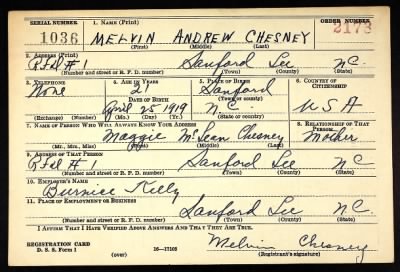 SERIAL NUMBER 1. NAME (Print) ORDER NUMBER
1036 MELVIN ANDREW CHESNEY 2178
(First) (Middle) (Last)
2. ADDRESS (Print)
Rtd #1 Sanford Lee N.C.
(Number and street or R. F. D. number) (Town) (County) (State)
3. TELEPHONE 4. AGE IN YEARS 5. PLACE OF BIRTH 6. COUNTRY OF CITIZENSHIP
None 21 Sanford
DATE OF BIRTH (Town or county)
April 25 1919 N.C. U.S.A
(Exchange) (Number) (Mo.) (Day) (Yr.) (State or country)
7. NAME OF PERSON WHO WILL ALWAYS KNOW YOUR ADDRESS 8. RELATIONSHIP OF THAT PERSON
Maggie McLean Chesney Mother
(Mr., Mrs., Miss) (First) (Middle) (Last)
9. ADDRESS OF THAT PERSON
Rtd #1 Sanford Lee NC
(Number and street or R. F. D. number) (Town) (County) (State)
10. EMPLOYER'S NAME
Burnice Kelly
11. PLACE OF EMPLOYMENT OR BUSINESS
Sanford Lee NC.
(Number and street or R. F. D. number) (Town) (County) (State)
I AFFIRM THAT I HAVE VERIFIED ABOVE ANSWERS AND THAT THEY ARE TRUE.
REGISTRATION CARD Melvin Chesney
D. S. S. Form 1 (over) 16—17105 (Registrant's signature)